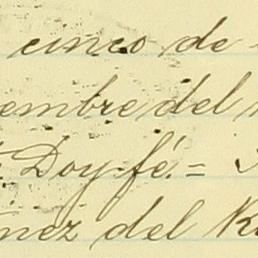 cinco de
embre del
Doy fé.=
nez del R